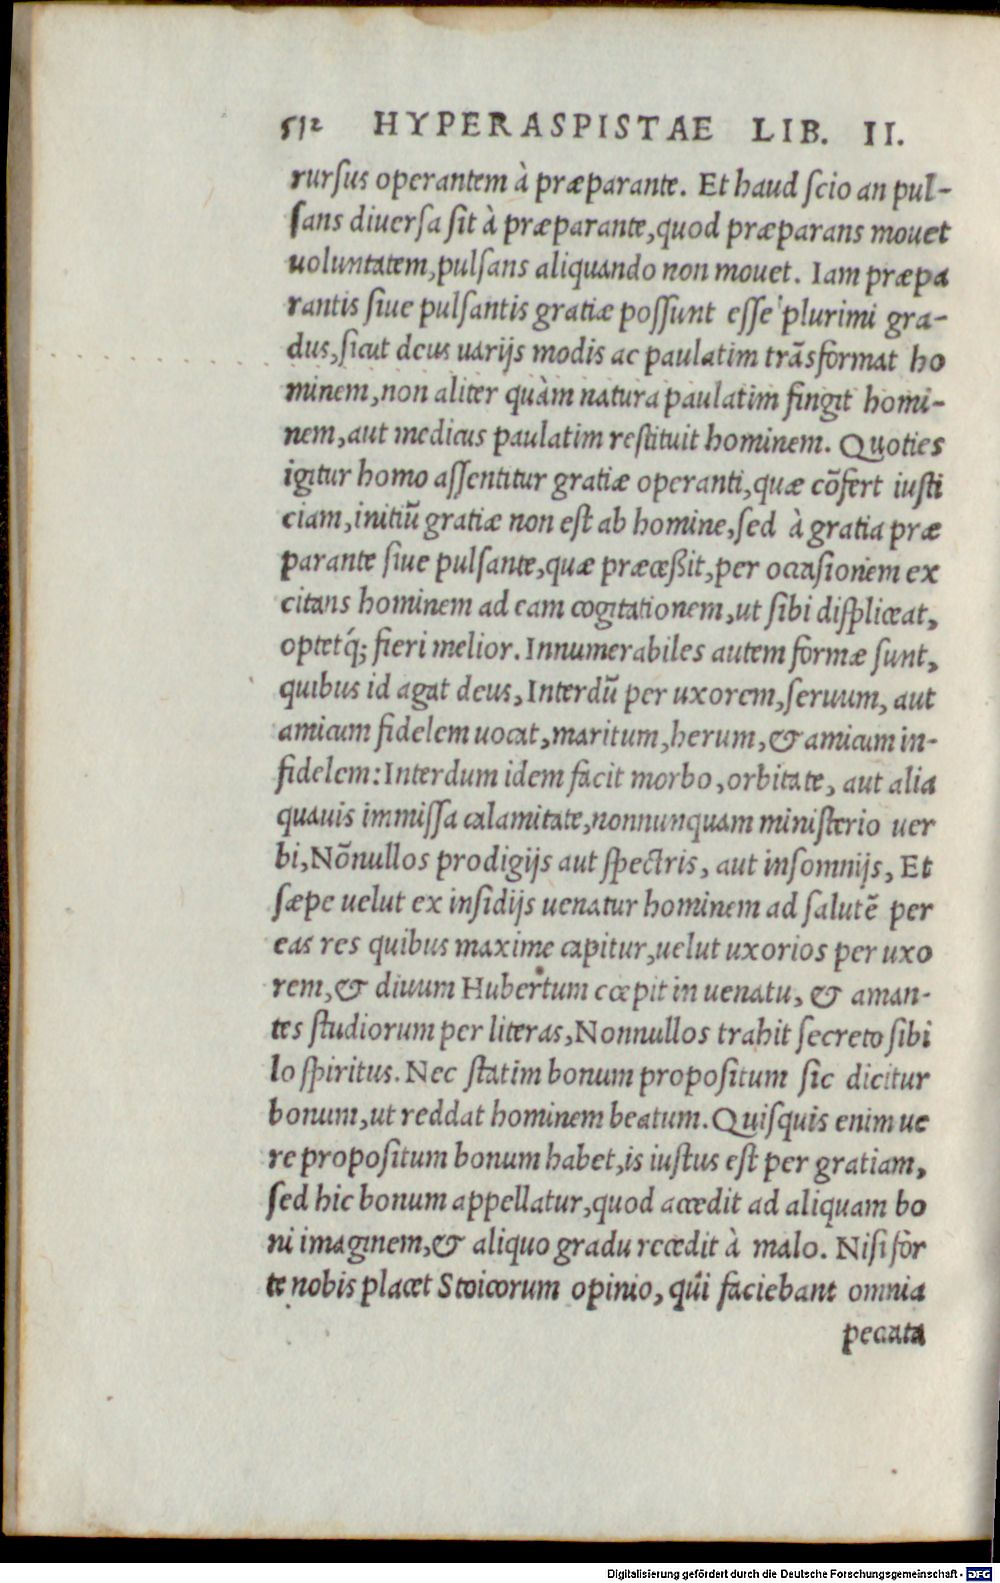 512 HYPERASPISTAE LIB. II.
rurſus operantem à præparante. Et haud ſcio an pul-
ſans diuerſa ſit à præparante,quod præparans mouet
uoluntatem,pulſans aliquando non mouet. Iam præpa
rantis ſiue pulſantis gratiæ poſſunt eſſe plurimi gra-
dus,ſicut deus uarijs modis ac paulatim trãsformat ho
minem,non aliter quàm natura paulatim fingit homi-
nem,aut medicus paulatim reſtituit hominem. Quoties
igitur homo aſſentitur gratiæ operanti,quæ cõfert iuſti
ciam,initiũ gratiæ non eſt ab homine,ſed à gratia præ
parante ſiue pulſante,quæ præceßit,per occaſionem ex
citans hominem ad eam cogitationem,ut ſibi diſpliceat,
optetq́; fieri melior. Innumerabiles autem formæ ſunt,
quibus id agat deus, Interdũ per uxorem,ſeruum, aut
amicum fidelem uocat,maritum,herum,& amicum in-
fidelem: Interdum idem facit morbo,orbitate, aut alia
quauis immiſſa calamitate,nonnunquam miniſterio uer
bi,Nõnullos prodigijs aut ſpectris, aut inſomnijs, Et
ſæpe uelut ex inſidijs uenatur hominem ad ſalutẽ per
eas res quibus maxime capitur,uelut uxorios per uxo
rem,& diuum Hubertum cœpit in uenatu, & aman-
tes ſtudiorum per literas,Nonnullos trahit ſecreto ſibi
lo ſpiritus. Nec ſtatim bonum propoſitum ſic dicitur
bonum,ut reddat hominem beatum. Quiſquis enim ue
re propoſitum bonum habet,is iuſtus eſt per gratiam,
ſed hic bonum appellatur,quod accedit ad aliquam bo
ni imaginem,& aliquo gradu recedit à malo. Niſi for
te nobis placet Stoicorum opinio, qui faciebant omnia
peccata
Digitalisierung gefördert durch die Deutsche Forschungsgemeinschaft - DFG